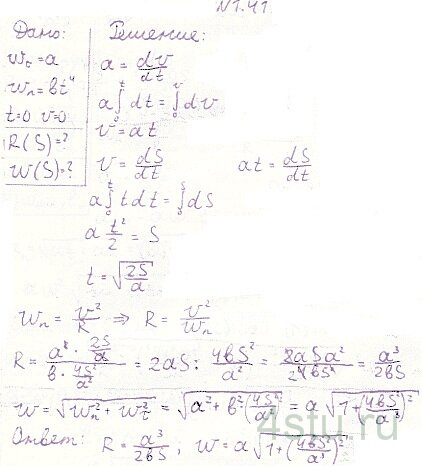 N1.41.
Дано:
w_τ = a
w_n = bt⁴
t=0 v=0
R(S)=?
w(S)=?
Решение:
a = dv/dt
a∫₀ᵗ dt = ∫₀ᵛ dv
v = at
v = dS/dt at = dS/dt
a∫₀ᵗ t dt = ∫₀ˢ dS
a t²/2 = S
t = √(2S/a)
w_n = v²/R ⇒ R = v²/w_n
R = (a² · 2S/a)/(b · 4S²/a²) = 2aS : 4bS²/a² = 2aSa²/4bS² = a³/2bS
w = √(w_n² + w_τ²) = √(a² + b²(4S²/a²)²) = a√(1+(4bS²/a³)²)
Ответ: R = a³/2bS, w = a√(1+(4bS²/a³)²)
4stu.ru